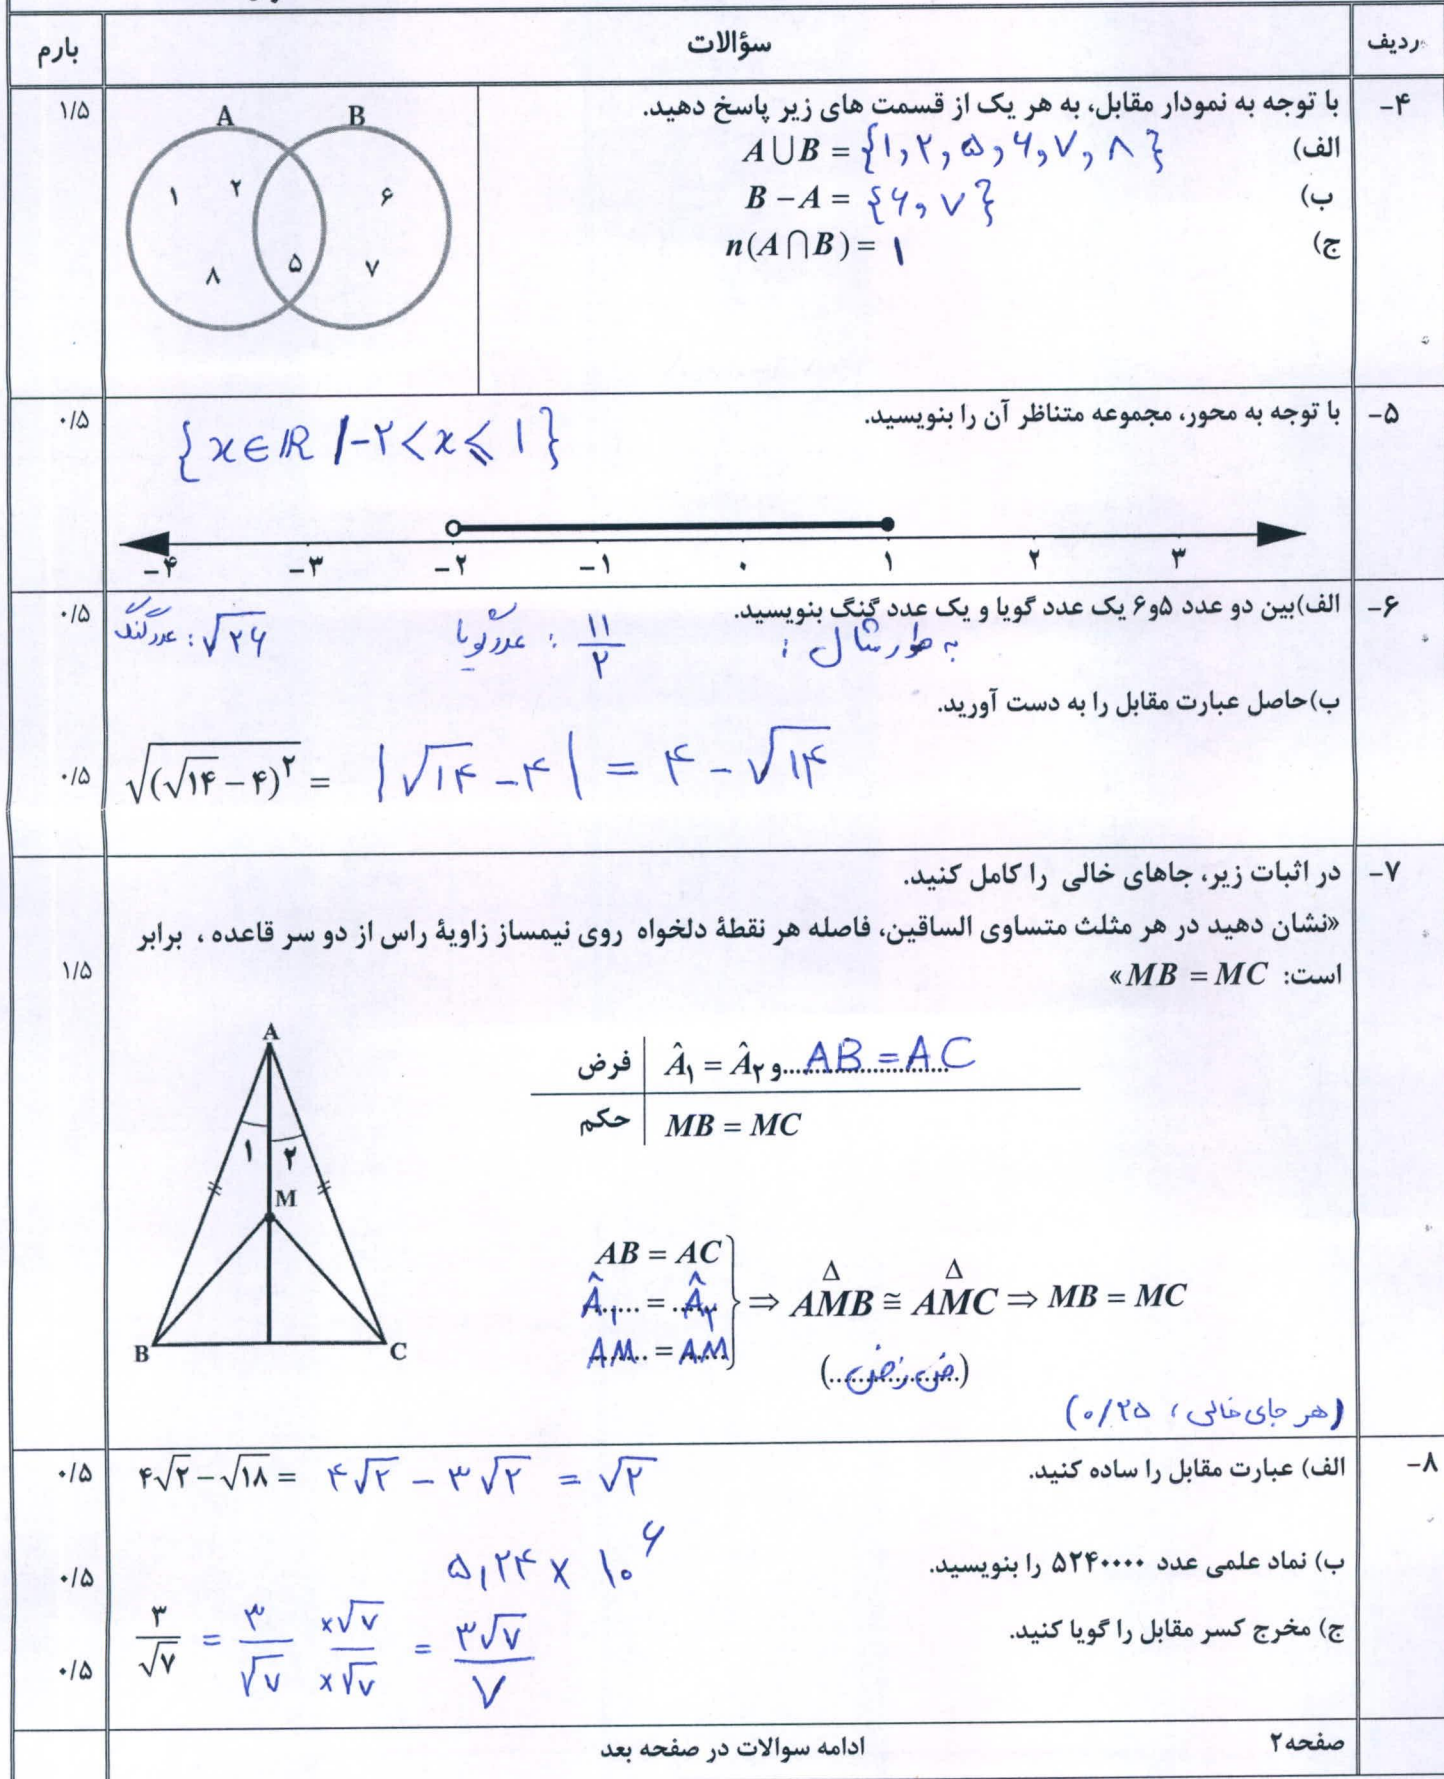 ردیف سؤالات بارم
۴- با توجه به نمودار مقابل، به هر یک از قسمت های زیر پاسخ دهید. ۱/۵
الف) A ∪ B = {۱, ۲, ۵, ۶, ۷, ۸}
ب) B − A = {۶, ۷}
ج) n(A ∩ B) = ۱
A B
۱ ۲ ۶
۸ ۵ ۷
۵- با توجه به محور، مجموعه متناظر آن را بنویسید. ۰/۵
{x ∈ ℝ | -۲ < x ⩽ ۱}
-۴ -۳ -۲ -۱ ۰ ۱ ۲ ۳
۶- الف)بین دو عدد ۵و۶ یک عدد گویا و یک عدد گنگ بنویسید. ۰/۵
به طور مثال : ۱۱/۲ : عدد گویا √۲۶ : عدد گنگ
ب)حاصل عبارت مقابل را به دست آورید.
√((√۱۴ − ۴)^۲) = |√۱۴ − ۴| = ۴ − √۱۴ ۰/۵
۷- در اثبات زیر، جاهای خالی را کامل کنید.
«نشان دهید در هر مثلث متساوی الساقین، فاصله هر نقطهٔ دلخواه روی نیمساز زاویهٔ راس از دو سر قاعده ، برابر
است: MB = MC» ۱/۵
فرض | Â۱ = Â۲ و.....AB = AC.....
حکم | MB = MC
A
۱ ۲
M
B C
AB = AC
Â۱ = Â۲ } ⇒ AMB ≅ AMC ⇒ MB = MC
AM = AM
(ض ز ض)
(هر جای خالی، ۰/۲۵)
۸- الف) عبارت مقابل را ساده کنید. ۰/۵
۴√۲ − √۱۸ = ۴√۲ − ۳√۲ = √۲
ب) نماد علمی عدد ۵۲۴۰۰۰۰ را بنویسید. ۰/۵
۵,۲۴ × ۱۰^۶
ج) مخرج کسر مقابل را گویا کنید. ۰/۵
۳/√۷ = ۳/√۷ ×√۷/×√۷ = ۳√۷/۷
صفحه۲ ادامه سوالات در صفحه بعد